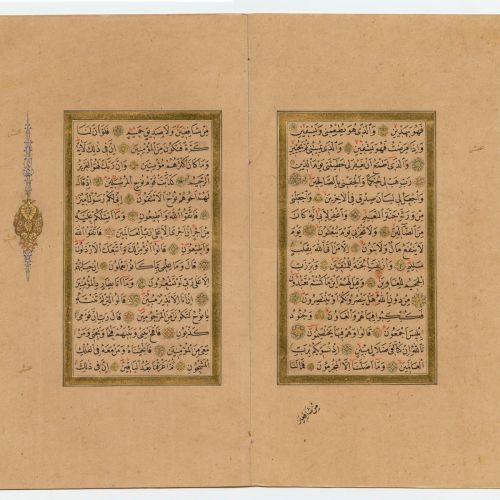 فهو يهدين والذي هو يطعمني ويسقين
واذا مرضت فهو يشفين والذي يميتني ثم يحيين
والذي اطمع ان يغفر لي خطيئتي يوم الدين
رب هب لي حكما والحقني بالصالحين
واجعل لي لسان صدق في الاخرين واجعلني
من ورثة جنة النعيم واغفر لابي انه كان
من الضالين ولا تخزني يوم يبعثون يوم
لا ينفع مال ولا بنون الا من اتى الله بقلب
سليم وازلفت الجنة للمتقين وبرزت
الجحيم للغاوين وقيل لهم اين ما كنتم تعبدون
من دون الله هل ينصرونكم او ينتصرون
فكبكبوا فيها هم والغاون وجنود
ابليس اجمعون قالوا وهم فيها يختصمون
تالله ان كنا لفي ضلال مبين اذ نسويكم برب
العالمين وما اضلنا الا المجرمون فما لنا
من شافعين ولا صديق حميم فلو ان لنا
كرة فنكون من المؤمنين ان في ذلك لاية
وما كان اكثرهم مؤمنين وان ربك لهو العزيز
الرحيم كذبت قوم نوح المرسلين اذ قال
لهم اخوهم نوح الا تتقون اني لكم رسول امين
فاتقوا الله واطيعون وما اسئلكم عليه
من اجر ان اجري الا على رب العالمين فاتقوا الله
واطيعون قالوا انؤمن لك واتبعك الارذلون
قال وما علمي بما كانوا يعملون ان حسابهم
الا على ربي لو تشعرون وما انا بطارد المؤمنين
ان انا الا نذير مبين قالوا لئن لم تنته
يا نوح لتكونن من المرجومين قال رب ان قومي
كذبون فافتح بيني وبينهم فتحا ونجني ومن
معي من المؤمنين فانجيناه ومن معه في الفلك
المشحون ثم اغرقنا بعد الباقين ان في ذلك